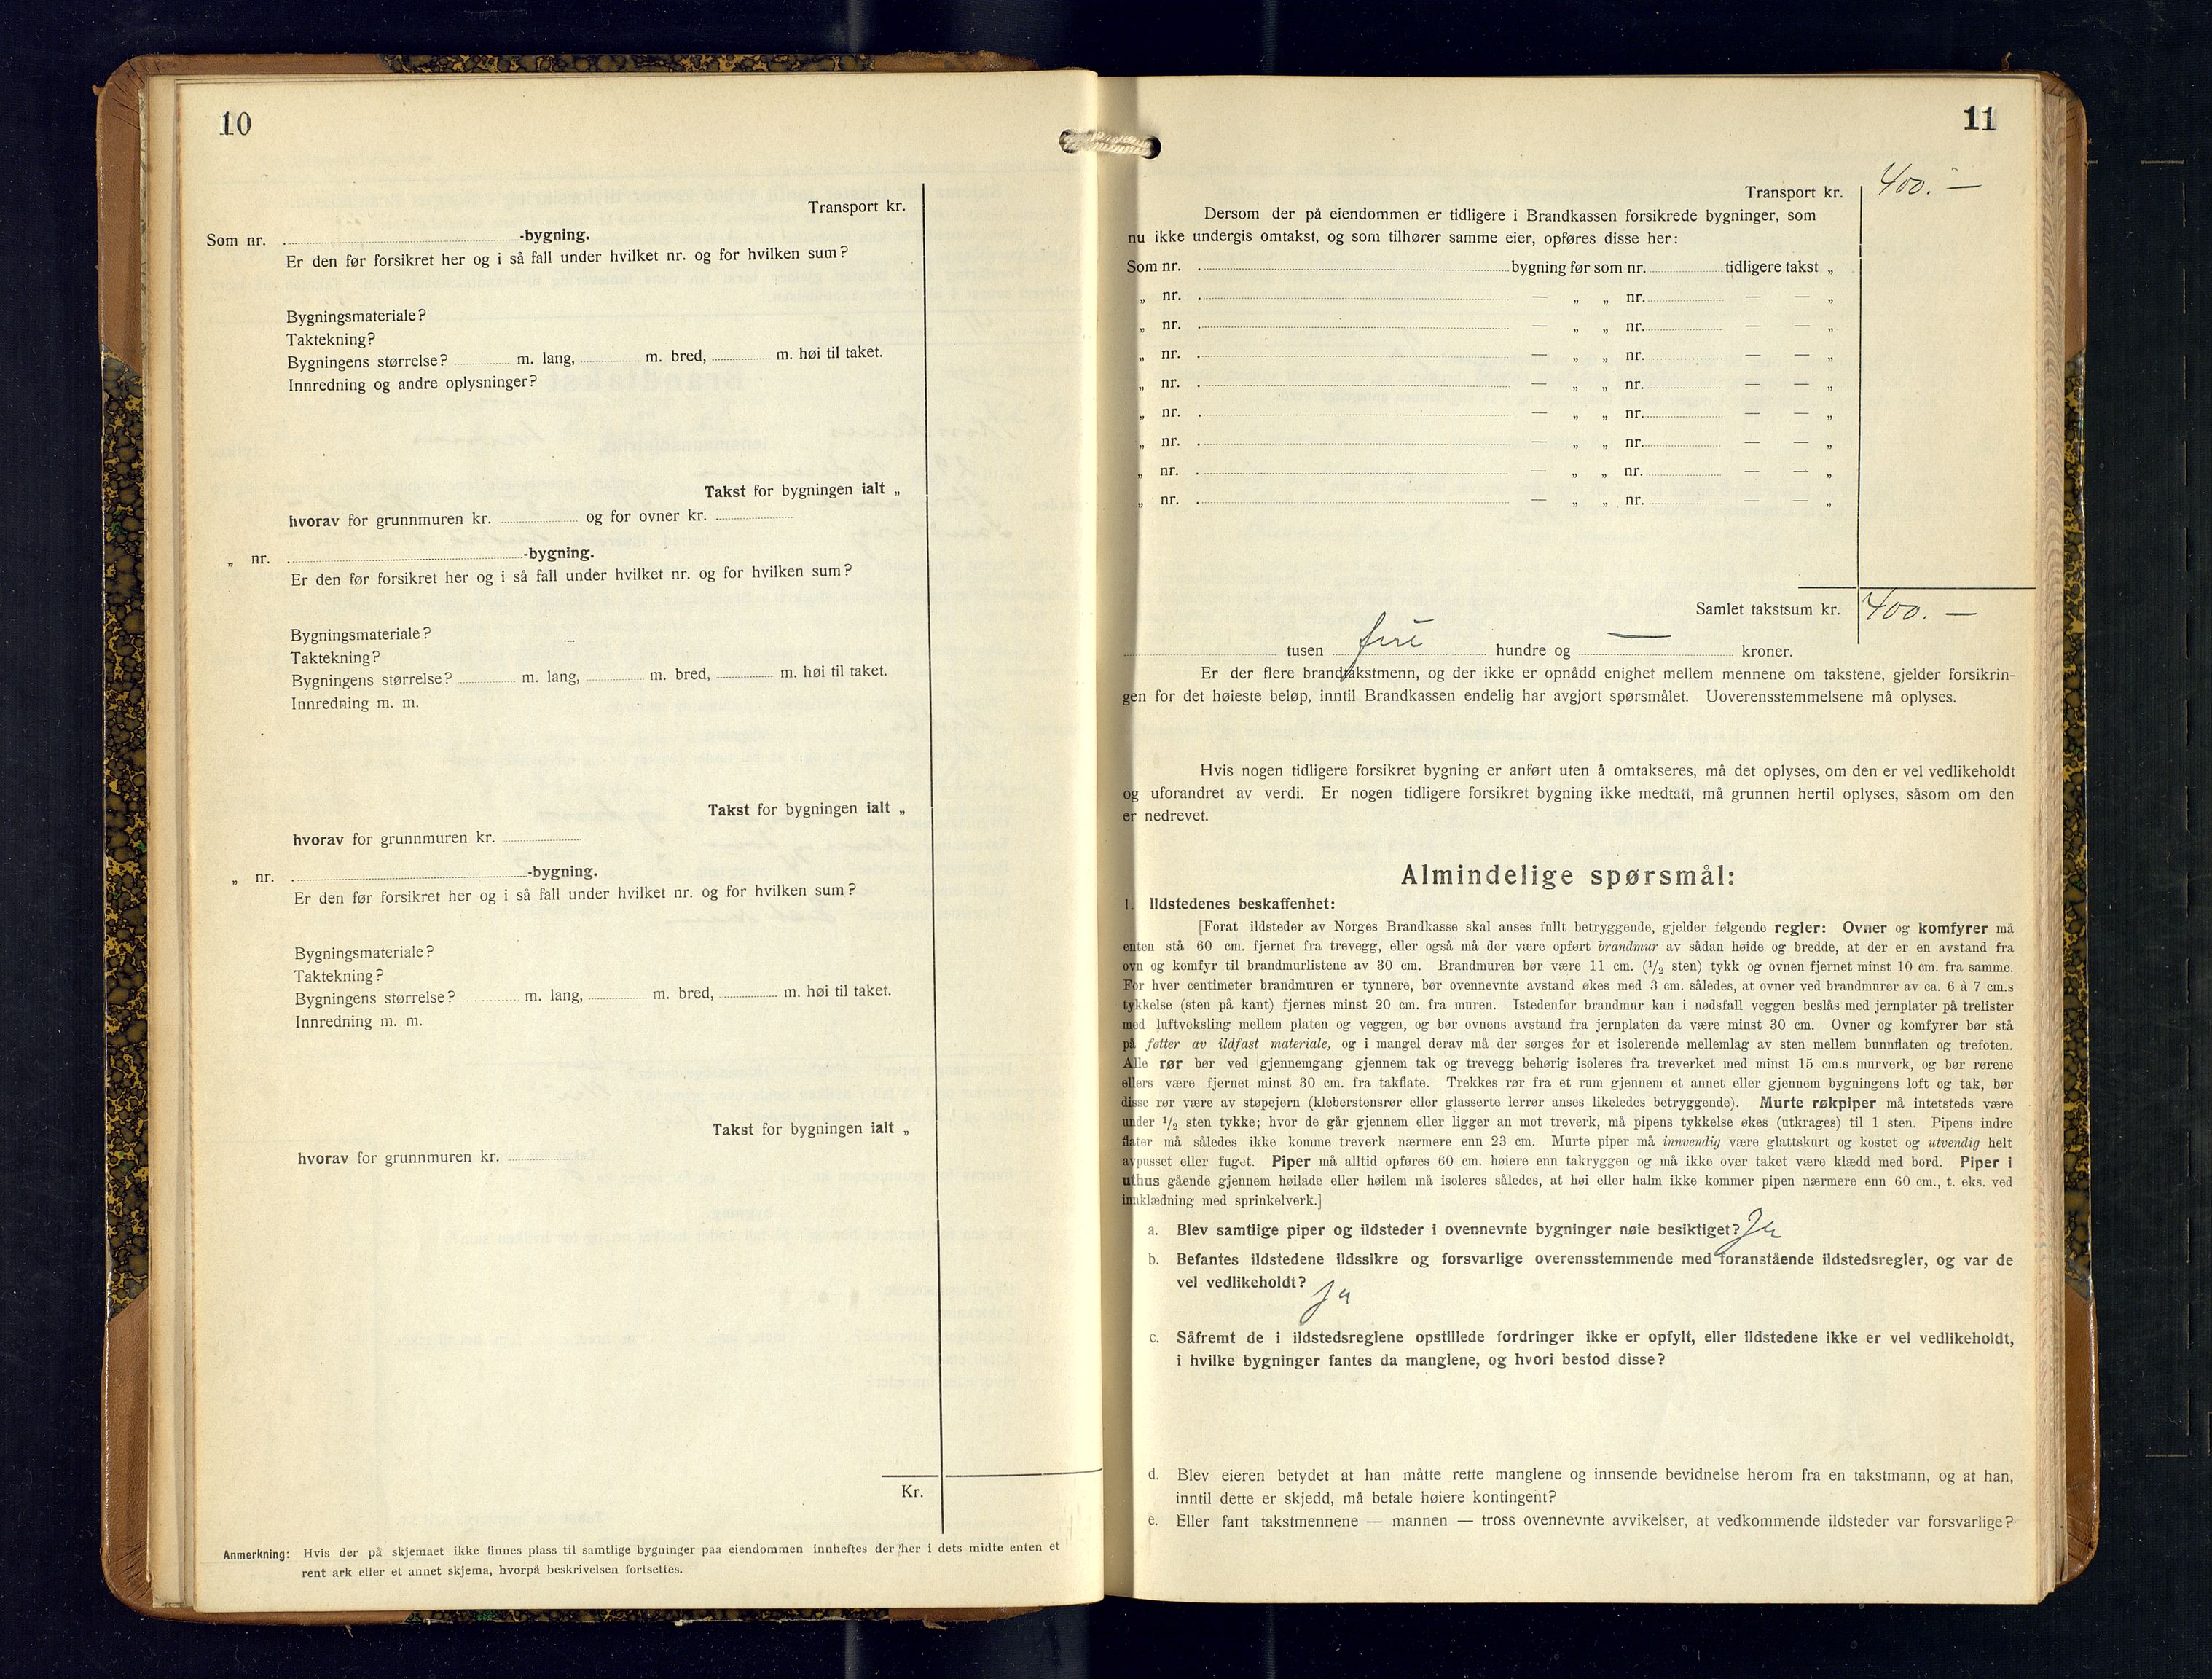 10
Transport kr.
Som nr. -bygning.
Er den før forsikret her og i så fall under hvilket nr. og for hvilken sum?
Bygningsmateriale?
Taktekning?
Bygningens størrelse? m. lang, m. bred, m. høi til taket.
Innredning og andre oplysninger?
Takst for bygningen ialt „
hvorav for grunnmuren kr. og for ovner kr.
„ nr. -bygning.
Er den før forsikret her og i så fall under hvilket nr. og for hvilken sum?
Bygningsmateriale?
Taktekning?
Bygningens størrelse? m. lang, m. bred, m. høi til taket.
Innredning m. m.
Takst for bygningen ialt „
hvorav for grunnmuren kr.
„ nr. -bygning.
Er den før forsikret her og i så fall under hvilket nr. og for hvilken sum?
Bygningsmateriale?
Taktekning?
Bygningens størrelse? m. lang, m. bred, m. høi til taket.
Innredning m. m.
Takst for bygningen ialt „
hvorav for grunnmuren kr.
Kr.
Anmerkning: Hvis der på skjemaet ikke finnes plass til samtlige bygninger paa eiendommen innheftes der her i dets midte enten et
rent ark eller et annet skjema, hvorpå beskrivelsen fortsettes.
11
Transport kr. 400. —
Dersom der på eiendommen er tidligere i Brandkassen forsikrede bygninger, som
nu ikke undergis omtakst, og som tilhører samme eier, opføres disse her:
Som nr. bygning før som nr. tidligere takst „
„ nr. — „ „ nr. — — „
„ nr. — „ „ nr. — — „
„ nr. — „ „ nr. — — „
„ nr. — „ „ nr. — — „
„ nr. — „ „ nr. — — „
„ nr. — „ „ nr. — — „
„ nr. — „ „ nr. — — „
„ nr. — „ „ nr. — — „
Samlet takstsum kr. 400. —
tusen fire hundre og — kroner.
Er der flere brandtakstmenn, og der ikke er opnådd enighet mellem mennene om takstene, gjelder forsikrin-
gen for det høieste beløp, inntil Brandkassen endelig har avgjort spørsmålet. Uoverensstemmelsene må oplyses.
Hvis nogen tidligere forsikret bygning er anført uten å omtakseres, må det oplyses, om den er vel vedlikeholdt
og uforandret av verdi. Er nogen tidligere forsikret bygning ikke medtatt, må grunnen hertil oplyses, såsom om den
er nedrevet.
Almindelige spørsmål:
1. Ildstedenes beskaffenhet:
[Forat ildsteder av Norges Brandkasse skal anses fullt betryggende, gjelder følgende regler: Ovner og komfyrer må
enten stå 60 cm. fjernet fra trevegg, eller også må der være opført brandmur av sådan høide og bredde, at der er en avstand fra
ovn og komfyr til brandmurlistene av 30 cm. Brandmuren bør være 11 cm. (1/2 sten) tykk og ovnen fjernet minst 10 cm. fra samme.
For hver centimeter brandmuren er tynnere, bør ovennevnte avstand økes med 3 cm. således, at ovner ved brandmurer av ca. 6 à 7 cm.s
tykkelse (sten på kant) fjernes minst 20 cm. fra muren. Istedenfor brandmur kan i nødsfall veggen beslås med jernplater på trelister
med luftveksling mellem platen og veggen, og bør ovnens avstand fra jernplaten da være minst 30 cm. Ovner og komfyrer bør stå
på føtter av ildfast materiale, og i mangel derav må der sørges for et isolerende mellemlag av sten mellem bunnflaten og trefoten.
Alle rør bør ved gjennemgang gjennem tak og trevegg behørig isoleres fra treverket med minst 15 cm.s murverk, og bør rørene
ellers være fjernet minst 30 cm. fra takflate. Trekkes rør fra et rum gjennem et annet eller gjennem bygningens loft og tak, bør
disse rør være av støpejern (kleberstensrør eller glasserte lerrør anses likeledes betryggende). Murte røkpiper må intetsteds være
under 1/2 sten tykke; hvor de går gjennem eller ligger an mot treverk, må pipens tykkelse økes (utkrages) til 1 sten. Pipens indre
flater må således ikke komme treverk nærmere enn 23 cm. Murte piper må innvendig være glattskurt og kostet og utvendig helt
avpusset eller fuget. Piper må alltid opføres 60 cm. høiere enn takryggen og må ikke over taket være klædd med bord. Piper i
uthus gående gjennem høilade eller høilem må isoleres således, at høi eller halm ikke kommer pipen nærmere enn 60 cm., t. eks. ved
innklædning med sprinkelverk.]
a. Blev samtlige piper og ildsteder i ovennevnte bygninger nøie besiktiget? Ja
b. Befantes ildstedene ildssikre og forsvarlige overensstemmende med foranstående ildstedsregler, og var de
vel vedlikeholdt? Ja
c. Såfremt de i ildstedsreglene opstillede fordringer ikke er opfylt, eller ildstedene ikke er vel vedlikeholdt,
i hvilke bygninger fantes da manglene, og hvori bestod disse?
d. Blev eieren betydet at han måtte rette manglene og innsende bevidnelse herom fra en takstmann, og at han,
inntil dette er skjedd, må betale høiere kontingent?
e. Eller fant takstmennene — mannen — tross ovennevnte avvikelser, at vedkommende ildsteder var forsvarlige?